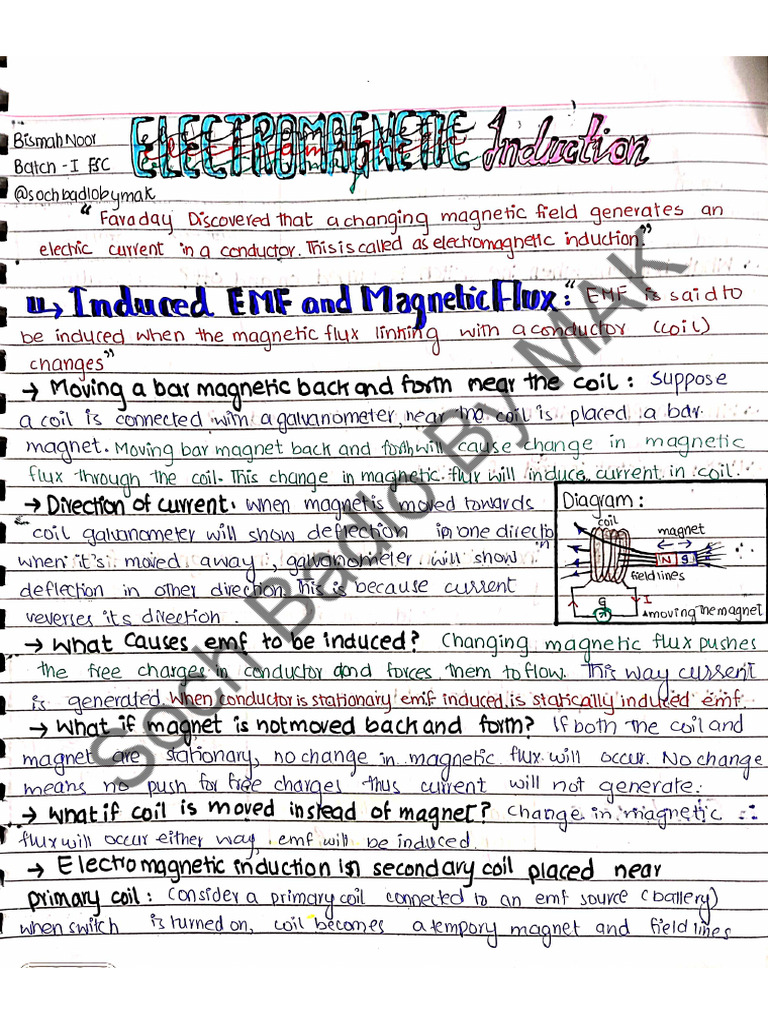 Bismah Noor
ELECTROMAGNETIC Induction
Batch - I FSC
@sochbadlobymak
"Faraday Discovered that a changing magnetic field generates an
electric current in a conductor. This is called as electromagnetic induction."
Induced EMF and Magnetic Flux: "EMF is said to
be induced when the magnetic flux linking with a conductor (coil)
changes"
→ Moving a bar magnetic back and forth near the coil: Suppose
a coil is connected with a galvanometer, near the coil is placed a bar
magnet. Moving bar magnet back and forth will cause change in magnetic
flux through the coil. This change in magnetic flux will induce current in coil.
→ Direction of current. when magnet is moved towards
coil galvanometer will show deflection in one direction
when it's moved away, galvanometer will show
deflection in other direction. This is because current
reverses its direction.
Diagram:
coil
magnet
N S
field lines
I
g
moving the magnet
→ What causes emf to be induced? Changing magnetic flux pushes
the free charges in conductor and forces them to flow. This way current
is generated when conductor is stationary emf induced is statically induced emf
→ What if magnet is not moved back and forth? If both the coil and
magnet are stationary, no change in magnetic flux will occur. No change
means no push for free charges thus current will not generate.
→ What if coil is moved instead of magnet? Change in magnetic
flux will occur either way, emf will be induced.
→ Electromagnetic induction in secondary coil placed near
primary coil: Consider a primary coil connected to an emf source (battery)
when switch is turned on, coil becomes a tempory magnet and field lines
Soch Badlo By MAK